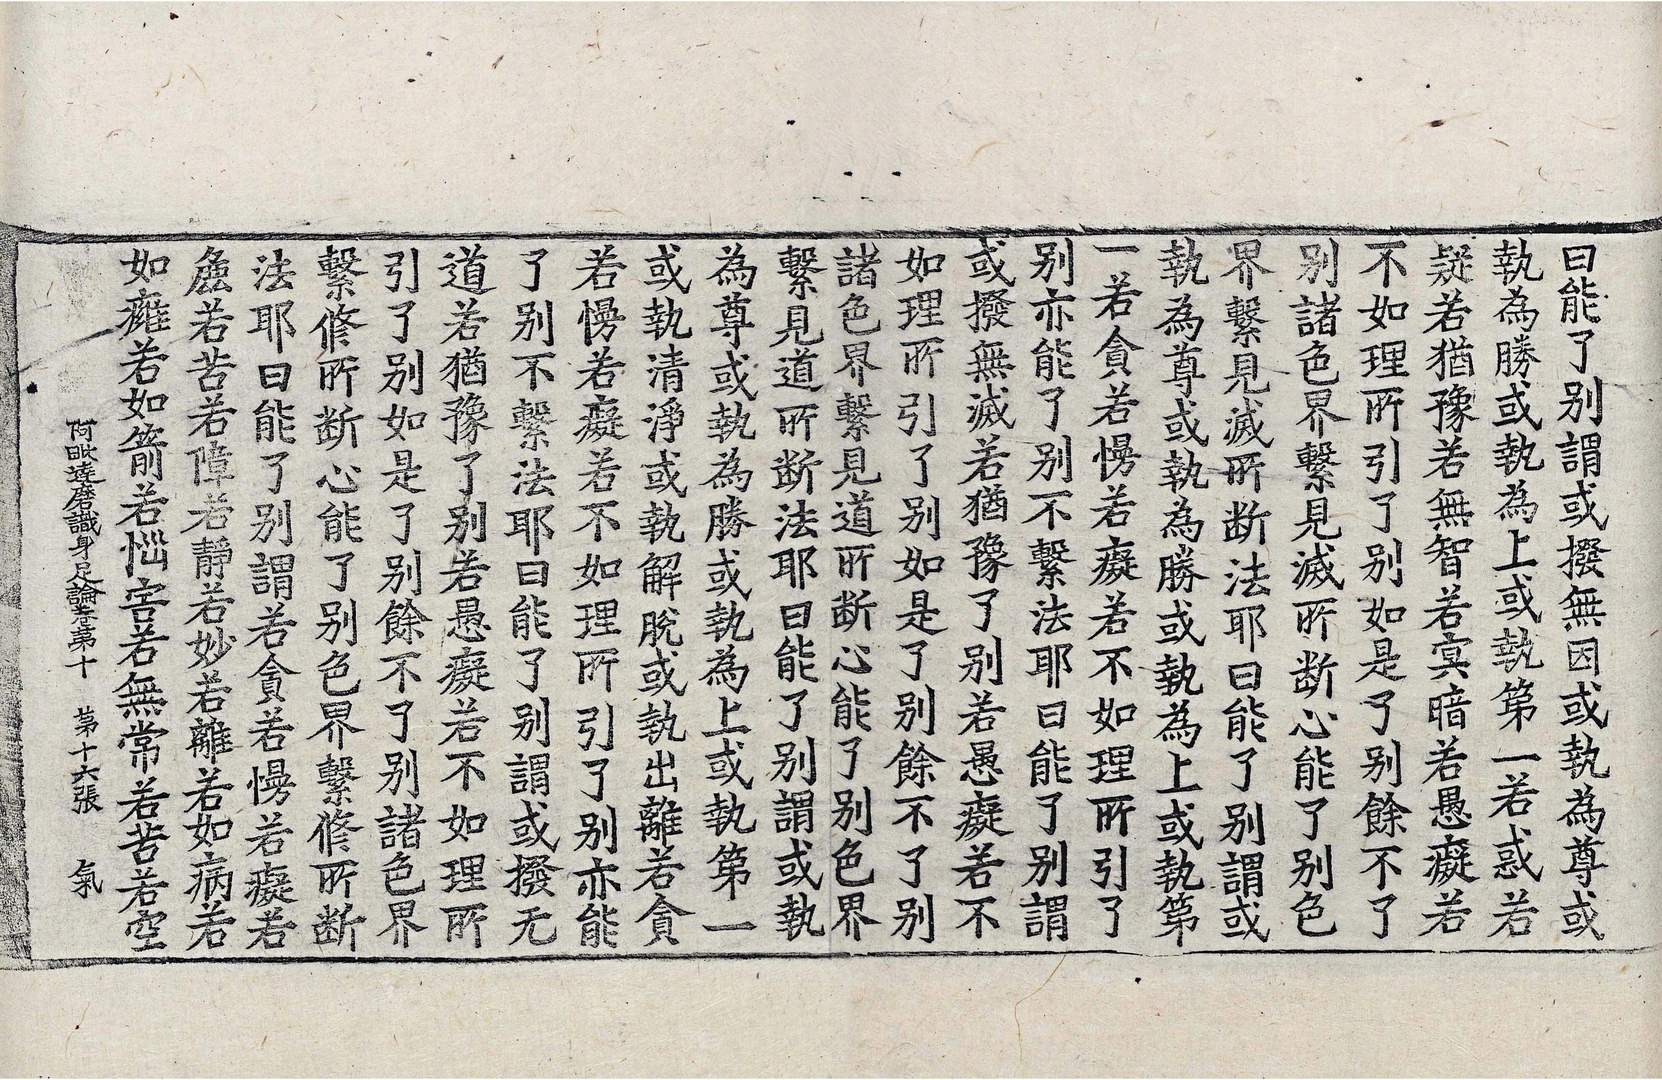 曰能了别謂或撥無因或執為尊或
執為勝或執為上或執第一若惑若
疑若猶豫若無智若冥暗若愚癡若
不如理所引了别如是了别餘不了
别諸色界繫見滅所断心能了别色
界繫見滅所断法耶曰能了别謂或
執為尊或執為勝或執為上或執第
一若貪若慢若癡若不如理所引了
别亦能了别不繫法耶曰能了别謂
或撥無滅若猶豫了别若愚癡若不
如理所引了别如是了别餘不了别
諸色界繫見道所断心能了别色界
繫見道所断法耶曰能了别謂或執
為尊或執為勝或執為上或執第一
或執清淨或執解脫或執出離若貪
若慢若癡若不如理所引了别亦能
了别不繫法耶曰能了别謂或撥无
道若猶豫了别若愚癡若不如理所
引了别如是了别餘不了别諸色界
繫修所断心能了别色界繫修所断
法耶曰能了别謂若貪若慢若癡若
麁若苦若障若靜若妙若離若如病若
如癰若如箭若惱害若無常若苦若空
阿毗達磨識身足論卷第十 第十六張 氣